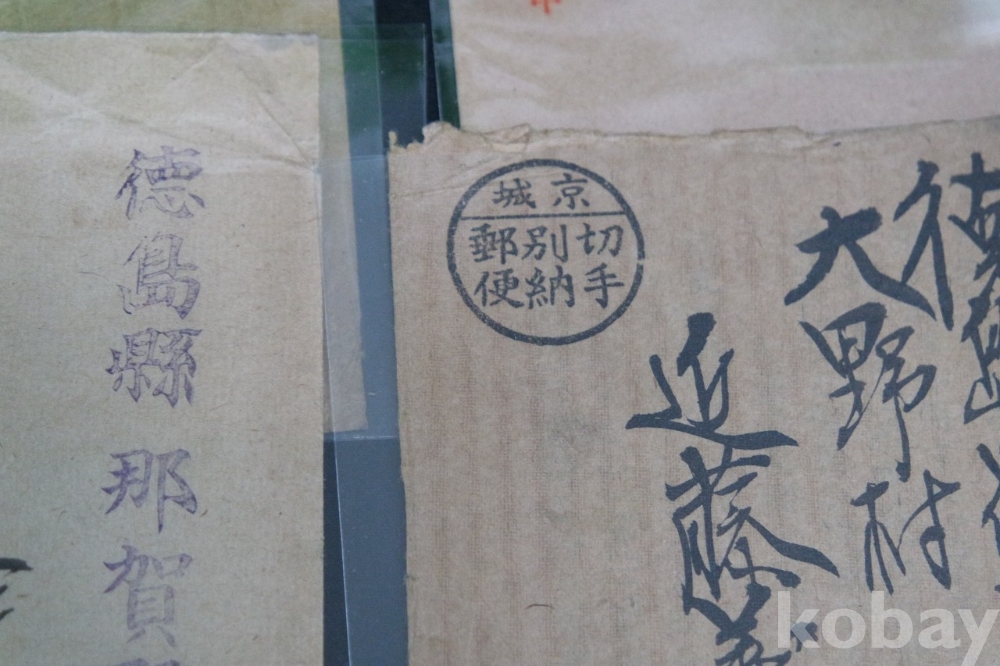 徳島縣 那賀
京城
切手
別納
郵便
徳島
大野村
近藤
kobay